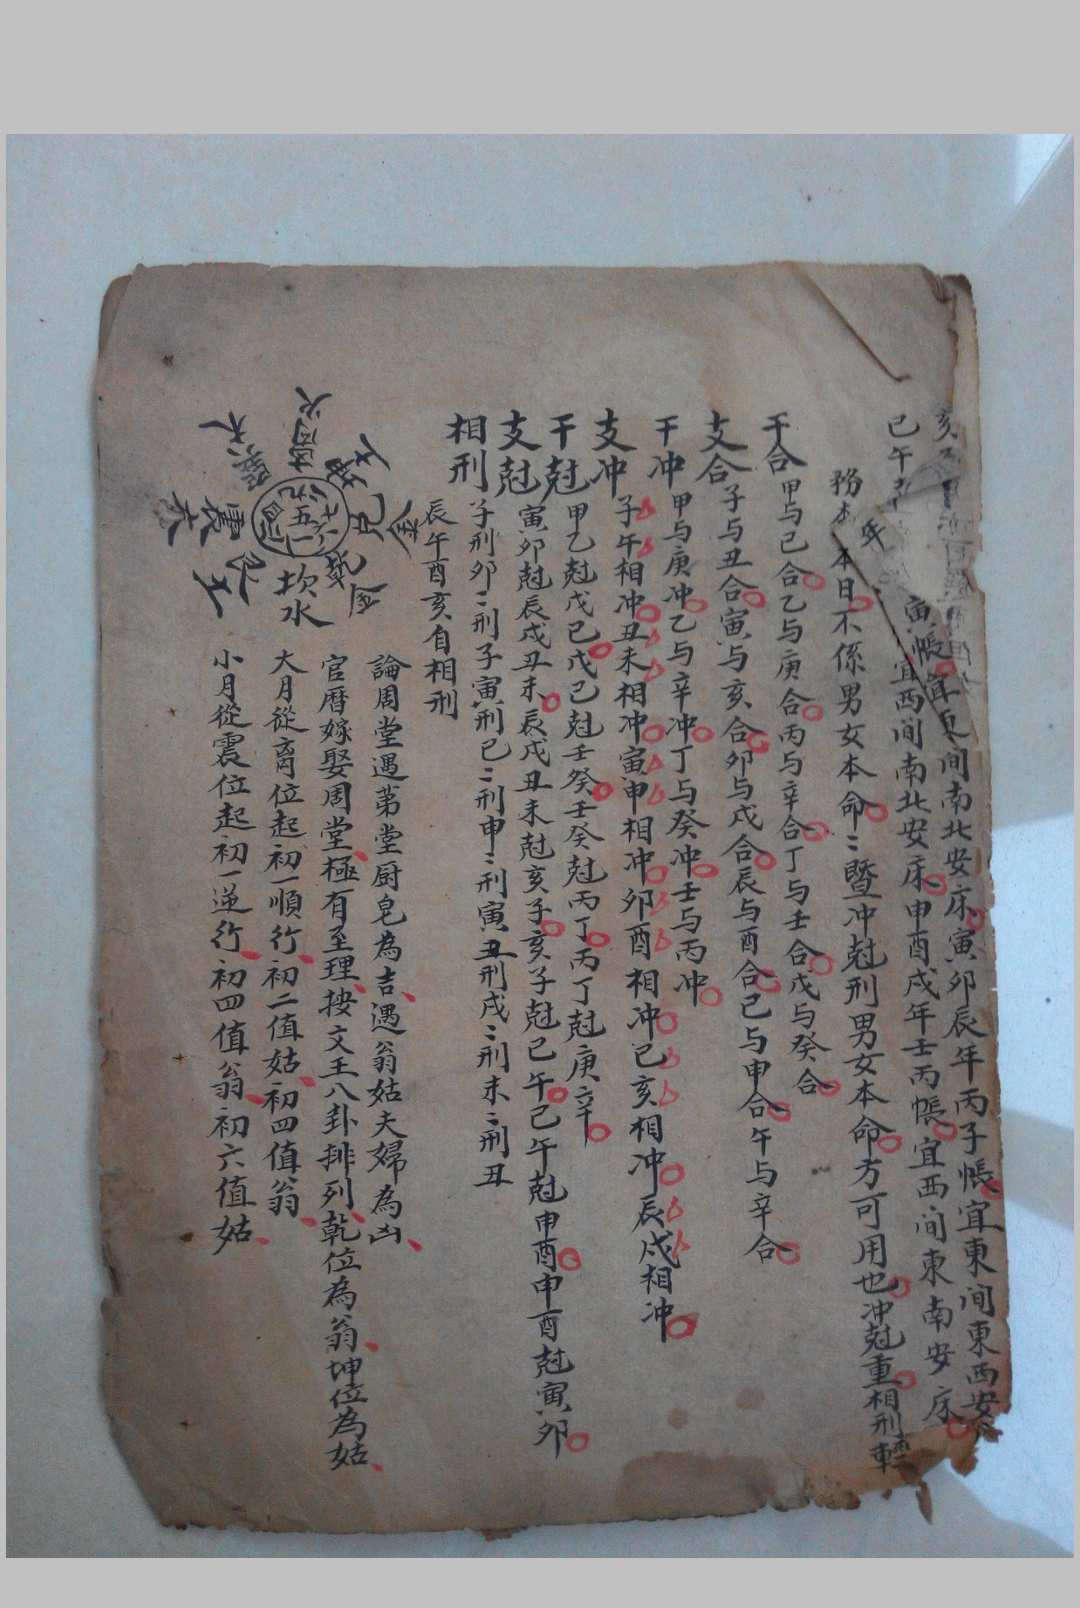 亥
寅帳宜東间南北安床寅卯辰年丙子帳宜東间東西安
已午
宜西间南北安床申酉戌年壬丙帳宜西间東南安床
務本
年
本日不係男女本命〻暨冲尅刑男女本命方可用也冲尅重相刑輕
干合
甲与己合乙与庚合丙与辛合丁与壬合戊与癸合
支合
子与丑合寅与亥合卯与戌合辰与酉合已与申合午与辛合
干冲
甲与庚冲乙与辛冲丁与癸冲壬与丙冲
支冲
子午相冲丑未相冲寅申相冲卯酉相冲已亥相冲辰戌相冲
干尅
甲乙尅戊己戊己尅壬癸壬癸尅丙丁丙丁尅庚辛
支尅
寅卯尅辰戌丑未辰戌丑未尅亥子亥子尅已午已午尅申酉申酉尅寅卯
相刑
子刑卯〻刑子寅刑已〻刑申〻刑寅丑刑戌〻刑未〻刑丑
辰午酉亥自相刑
論周堂遇第堂厨皂為吉遇翁姑夫婦為凶
官曆嫁娶周堂極有至理按文王八卦排列乾位為翁坤位為姑
大月從离位起初一順行初二值姑初四值翁
小月從震位起初一逆行初四值翁初六值姑
离火
坤土
兌金
乾金
坎水
艮土
震木
巽木